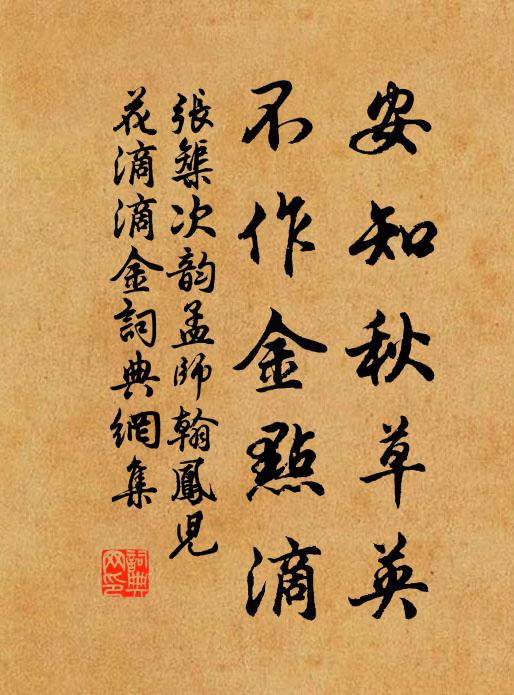 安知秋草英
不作金點滴
張榘次韵孟師翰鳳児
花滴滴金詞典網集
詞典网印